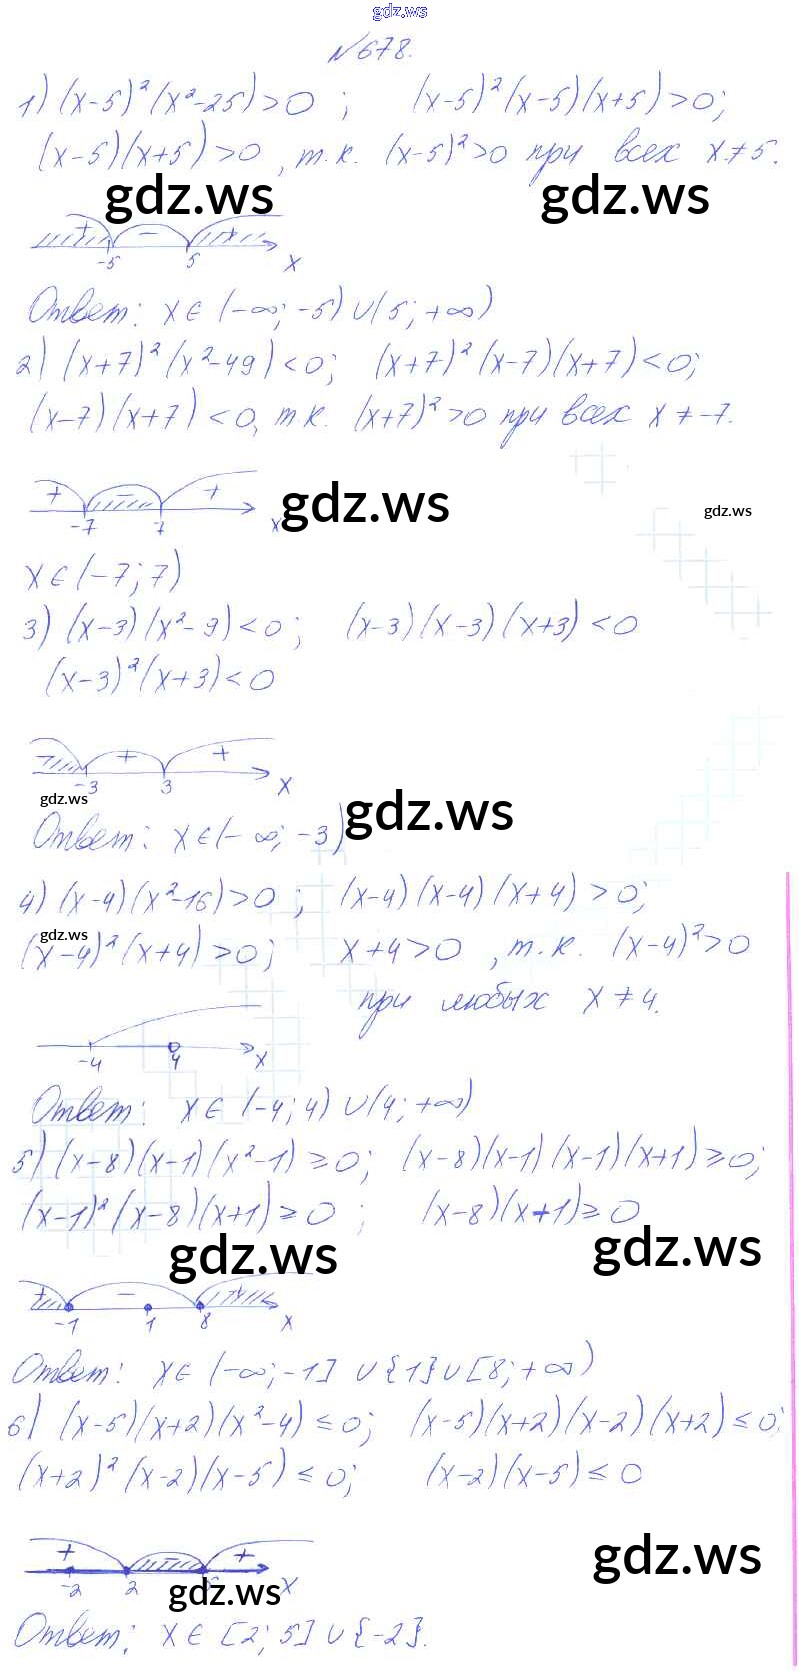 gdz.ws
№678.
1) (x-5)²(x²-25)>0 ; (x-5)²(x-5)(x+5)>0;
(x-5)(x+5)>0, т.к. (x-5)²>0 при всех x≠5.
gdz.ws gdz.ws
+ − +
-5 5 x
Ответ: x∈(-∞;-5)∪(5;+∞)
2) (x+7)²(x²-49)<0; (x+7)²(x-7)(x+7)<0;
(x-7)(x+7)<0, т.к. (x+7)²>0 при всех x≠-7.
+ − +
gdz.ws gdz.ws
-7 7 x
x∈(-7;7)
3) (x-3)(x²-9)<0; (x-3)(x-3)(x+3)<0
(x-3)²(x+3)<0
− + +
-3 3 x
gdz.ws gdz.ws
Ответ: x∈(-∞;-3)
4) (x-4)(x²-16)>0 ; (x-4)(x-4)(x+4)>0;
gdz.ws
(x-4)²(x+4)>0; x+4>0, т.к. (x-4)²>0
при любых x≠4.
-4 4 x
Ответ: x∈(-4;4)∪(4;+∞)
5) (x-8)(x-1)(x²-1)≥0; (x-8)(x-1)(x-1)(x+1)≥0;
(x-1)²(x-8)(x+1)≥0 ; (x-8)(x+1)≥0
gdz.ws gdz.ws
+ − +
-1 1 8 x
Ответ: x∈(-∞;-1]∪{1}∪[8;+∞)
6) (x-5)(x+2)(x²-4)≤0; (x-5)(x+2)(x-2)(x+2)≤0;
(x+2)²(x-2)(x-5)≤0; (x-2)(x-5)≤0
+ − +
gdz.ws
-2 2 x
gdz.ws
Ответ: x∈[2;5]∪{-2}.